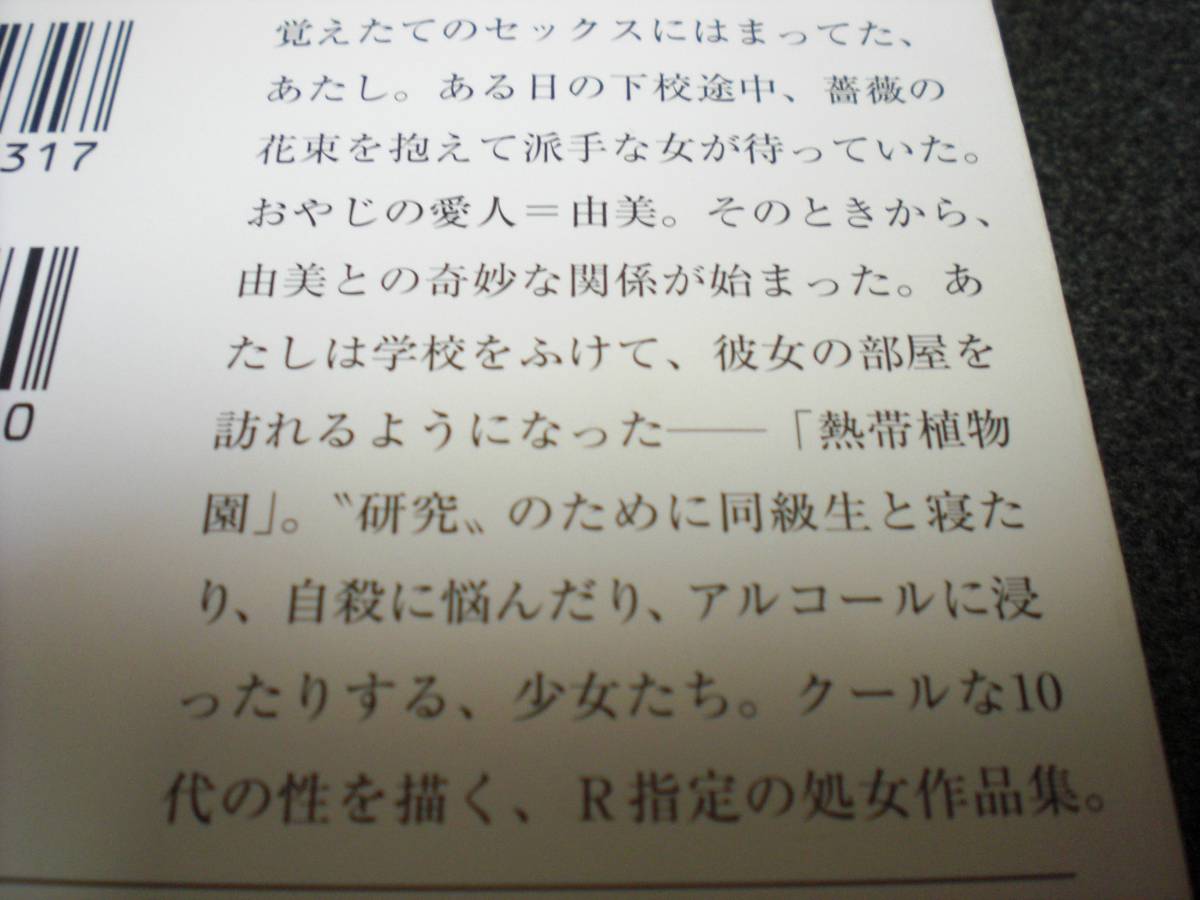 317
0
覚えたてのセックスにはまってた、
あたし。ある日の下校途中、薔薇の
花束を抱えて派手な女が待っていた。
おやじの愛人＝由美。そのときから、
由美との奇妙な関係が始まった。あ
たしは学校をふけて、彼女の部屋を
訪れるようになった――「熱帯植物
園」。〝研究〟のために同級生と寝た
り、自殺に悩んだり、アルコールに浸
ったりする、少女たち。クールな10
代の性を描く、R指定の処女作品集。